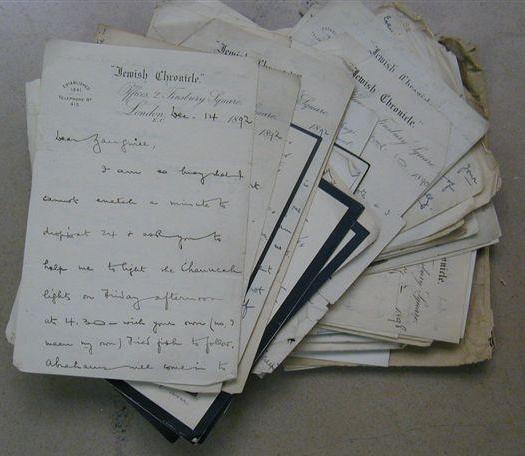 "Jewish Chronicle."
ESTABLISHED
1841
TELEPHONE Nº
415
Office, 2, Finsbury Square,
London, Dec. 14 1892
E.C.
Dear Zangwill,
I am so busy that I
cannot snatch a minute to
drop at 24 & ask you to
help me to light the Chanucah
lights on Friday afternoon
at 4.30 – with your own (no, I
mean my own) Fried fish to follow.
Abrahams will come in to
Chronicle."
Square,
1892
Square,
1892
Jewish Chronicle
Chronicle."
Finsbury Square,
Chronicle."
Square,